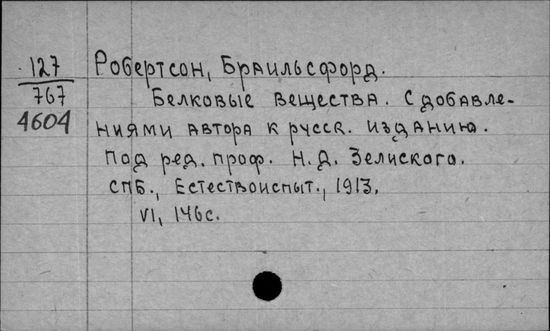 127
767
4604
Робертсон, Браильсфорд.
Белковые вещества. С добавле-
ниями автора к русск. изданию.
Под ред. проф. Н. Д. Зелиского.
СПБ., Естествоиспыт., 1913.
VI, 146с.